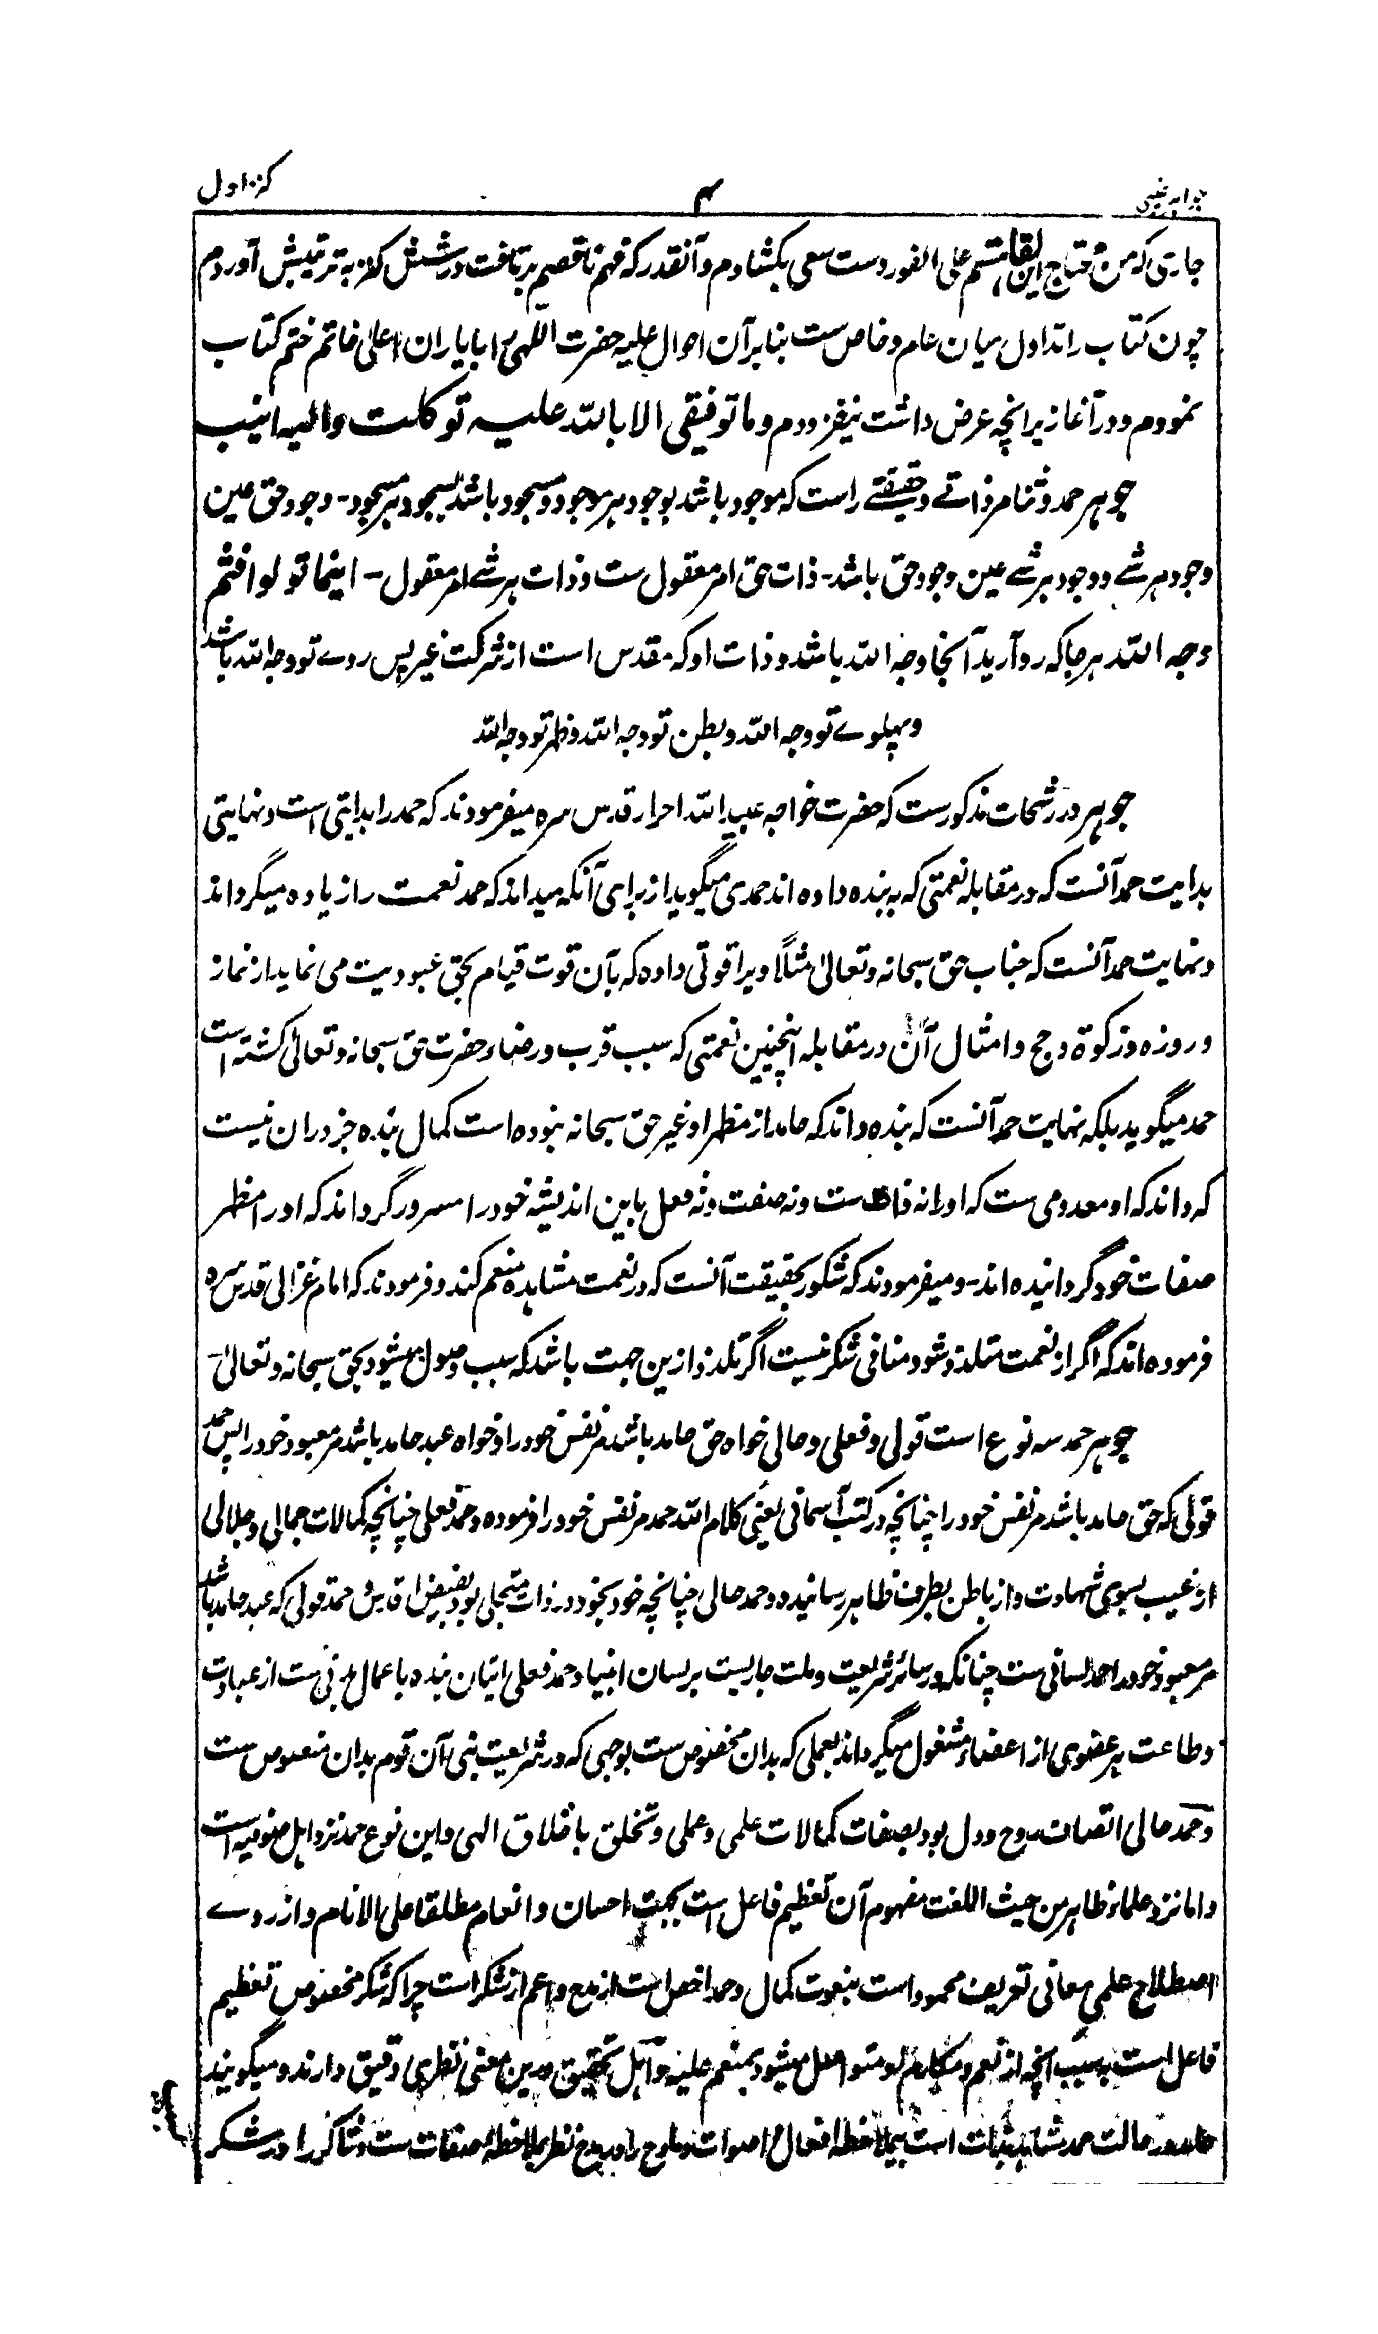 جواہر غیبی ۴ کنز اول
جاری که من محتاج این القا هستم علی الفور دست سعی بکشادم و آنقدر که فهم ناقصم دریافت در شش کنز به ترتیبش آوردم
چون کتاب را تداول میان عام و خاص ست بنا برآن احوال علیه حضرت اللهی را بایاران اعلی خاتم ختم کتاب
نمودم و در آغاز برانچه عرض داشت نیفزودم و ما توفیقی الا بالله علیه توکلت والیه انیب
جوہر حمد و ثنا مر ذاتے و حقیقتے راست که موجود باشد بوجود ہر موجود و مسجود باشد بسجود ہر مسجود۔ وجود حق عین
وجود ہر شے و وجود ہر شے عین وجود حق باشد۔ ذات حق امر معقول ست و ذات ہر شے امر معقول۔ اینما تولوا فثم
وجه الله ہر جا که رو آرید آنجا وجه الله باشد و ذات او که مقدس است از شرکت غیر پس روے تو وجه الله باشد
و پہلوے تو وجه الله و بطن تو وجه الله و ظہر تو وجه الله
جوہر در رشحات مذکورست که حضرت خواجه عبید الله احرار قدس سره میفرمودند که حمد را بدایتی است و نهایتی
بدایت حمد آنست که در مقابله نعمتی که به بنده داده اند حمدی میگوید از برای آنکه میداند که حمد نعمت را زیاده میگرداند
و نهایت حمد آنست که جناب حق سبحانه و تعالی مثلاً ویرا قوتی داده که بآن قوت قیام بحق عبودیت می نماید از نماز
و روزه و زکوة و حج و امثال آن در مقابله اینچنین نعمتی که سبب قرب و رضاء حضرت حق سبحانه و تعالی گشته است
حمد میگوید بلکه نهایت حمد آنست که بنده داند که حامد از مظهر او غیر حق سبحانه نبوده است کمال بنده جز در ان نیست
که داند که او معدومی ست که اورا نه ذات ست و نه صفت و نه فعل باین اندیشه خود را مسرور گرداند که اورا مظهر
صفات خود گردانیده اند۔ و میفرمودند که شکور بحقیقت آنست که در نعمت مشاهده منعم کند و فرمودند که امام غزالی قدس سره
فرموده اند که اگر از نعمت متلذذ شود منافی شکر نیست اگر تلذذ ازین جهت باشد که سبب وصول میشود بحق سبحانه و تعالی۔
جوہر حمد سه نوع است قولی و فعلی و حالی خواه حق حامد باشد مر نفس خود را و خواه عبد حامد باشد مر معبود خود را پس حمد
قولی که حق حامد باشد مر نفس خود را چنانچه در کتب آسمانی یعنی کلام الله حمد مر نفس خود را فرموده و حمد فعلی چنانچه کمالات جمالی و جلالی
از غیب بسوی شهادت و از باطن بطرف ظاهر رسانیده و حمد حالی چنانچه خود بخود در ذات متجلی بود بفیض اقدس و حمد قولی که عبد حامد باشد
مر معبود خود را حمد لسانی ست چنانکه در سائر شریعت و ملت جاریست بر لسان انبیا و حمد فعلی اتیان بنده باعمال بدنی ست از عبادات
و طاعت ہر عضوی از اعضاء مشغول میگرداند بعملی که بدان مخصوص ست بوجهی که در شریعت نبی آن قوم بدان منصوص ست
و حمد حالی اتصاف روح و دل بود بصفات کمالات علمی و عملی و تخلق باخلاق الهی و این نوع حمد نزد اہل صوفیه است
و اما نزد علماء ظاهر من حیث اللغت مفهوم آن تعظیم فاعل است بجهت احسان و انعام مطلقا علی الانام و از روے
اصطلاح علمی معانی تعریف محمود است بنعوت کمال و حمد اخص است از مدح و اعم از شکر است چرا که شکر مخصوص تعظیم
فاعل است بسبب آنچه از نعم و مکارم او متواصل میشود بمنعم علیه و اہل تحقیق درین معنی نظری دقیق دارند و میگویند
حامد در حالت حمد شاہد ثبات است بملاحظه افعال و اصوات و مادح را در مدح نظر بملاحظه صفات ست و شاکر را در شکر